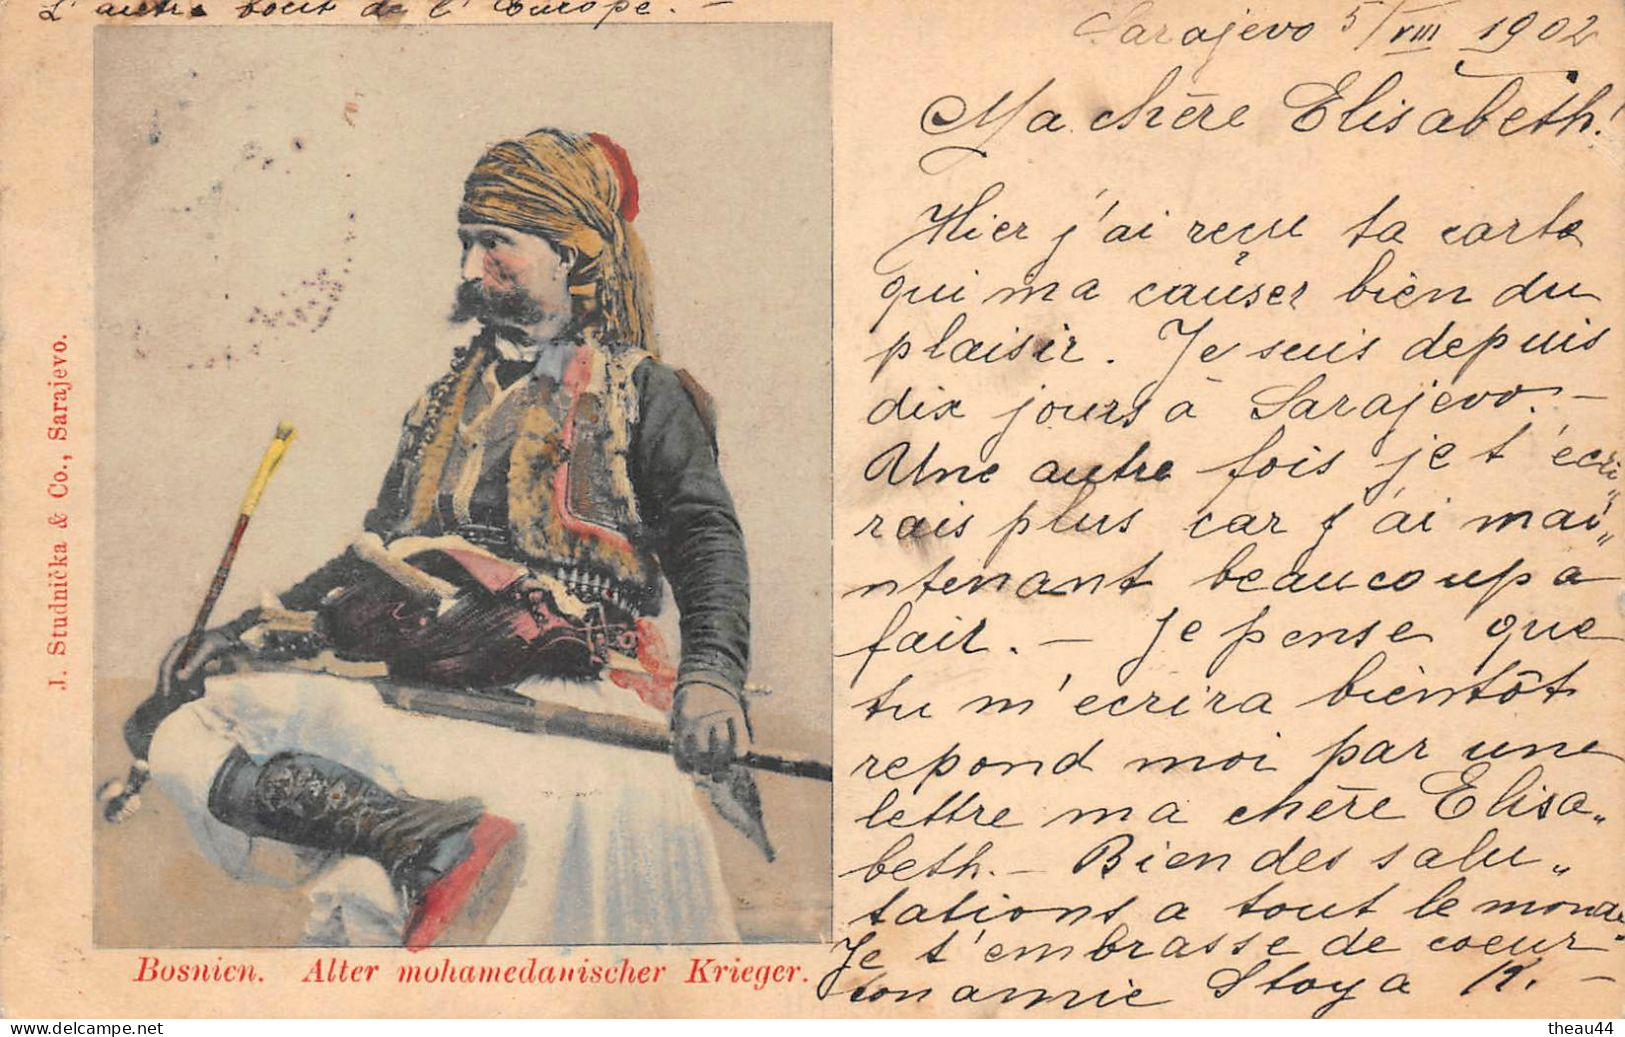 L'autre bout de l'Europe. –
Sarajevo 5/VIII 1902
Ma chère Elisabeth!
Hier j'ai reçu ta carte
qui ma causer bien du
plaisir. Je suis depuis
dix jours à Sarajevo. –
Une autre fois je t'écri„
rais plus car j'ai mai„
ntenant beaucoup a
fair. – Je pense que
tu m'ecrira bientôt
repond moi par une
lettre ma chère Elisa„
beth. – Bien des salu„
tations a tout le monde
Je t'embrasse de coeur
ton amie Stoya K. –
J. Studnička & Co., Sarajevo.
Bosnien. Alter mohamedanischer Krieger.
theau44